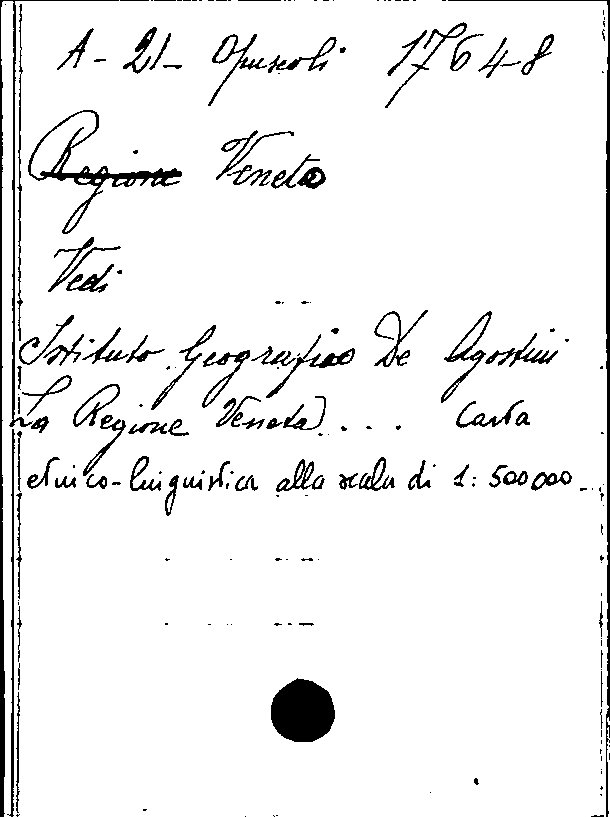 A - 21 - Opuscoli 17648
Regione Veneto
Vedi
Istituto Geografico De Agostini
La Regione Veneta.... Carta
etnico-linguistica alla scala di 1:500000